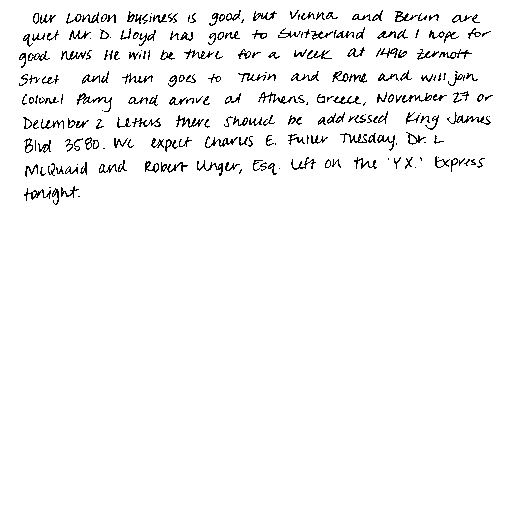 Our London business is good, but Vienna and Berlin are
quiet Mr. D. Lloyd has gone to Switzerland and I hope for
good news He will be there for a week at 1496 Zermott
Street and then goes to Turin and Rome and will join
Colonel Parry and arrive at Athens, Greece, November 27 or
December 2 Letters there should be addressed King James
Blvd 3580. We expect Charles E. Fuller Tuesday. Dr. L
McQuaid and Robert Unger, Esq. left on the 'Y X.' Express
tonight.